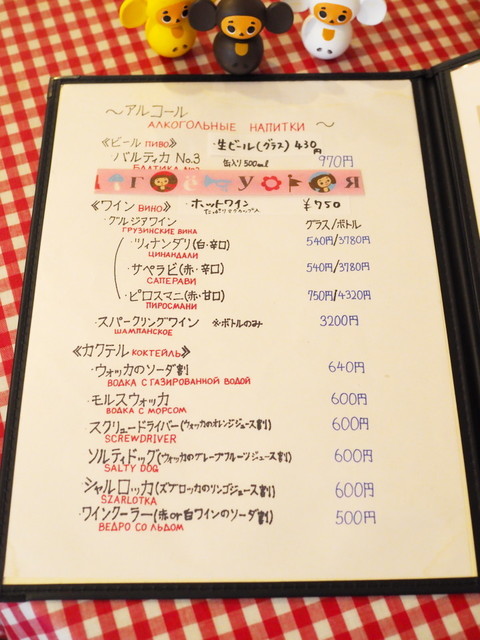 〜アルコール〜
АЛКОГОЛЬНЫЕ НАПИТКИ
《ビール ПИВО》 ・生ビール(グラス) 430円
・バルティカ No.3 缶入り500ml 970円
Г У Я
《ワイン ВИНО》 ・ホットワイン ¥750
・グルジアワイン グラス/ボトル
ГРУЗИНСКИЕ ВИНА
・ツィナンダリ(白・辛口) 540円/3780円
ЦИНАНДАЛИ
・サペラビ(赤・辛口) 540円/3780円
САПЕРАВИ
・ピロスマニ(赤・甘口) 750円/4320円
ПИРОСМАНИ
・スパークリングワイン ※ボトルのみ 3200円
ШАМПАНСКОЕ
《カクテル КОКТЕЙЛЬ》
・ウォッカのソーダ割 640円
ВОДКА С ГАЗИРОВАННОЙ ВОДОЙ
・モルスウォッカ 600円
ВОДКА С МОРСОМ
・スクリュードライバー(ウォッカのオレンジジュース割) 600円
SCREWDRIVER
・ソルティドッグ(ウォッカのグレープフルーツジュース割) 600円
SALTY DOG
・シャルロッカ(ズブロッカのリンゴジュース割) 600円
SZARLOTKA
・ワインクーラー(赤or白ワインのソーダ割) 500円
ВЕДРО СО ЛЬДОМ